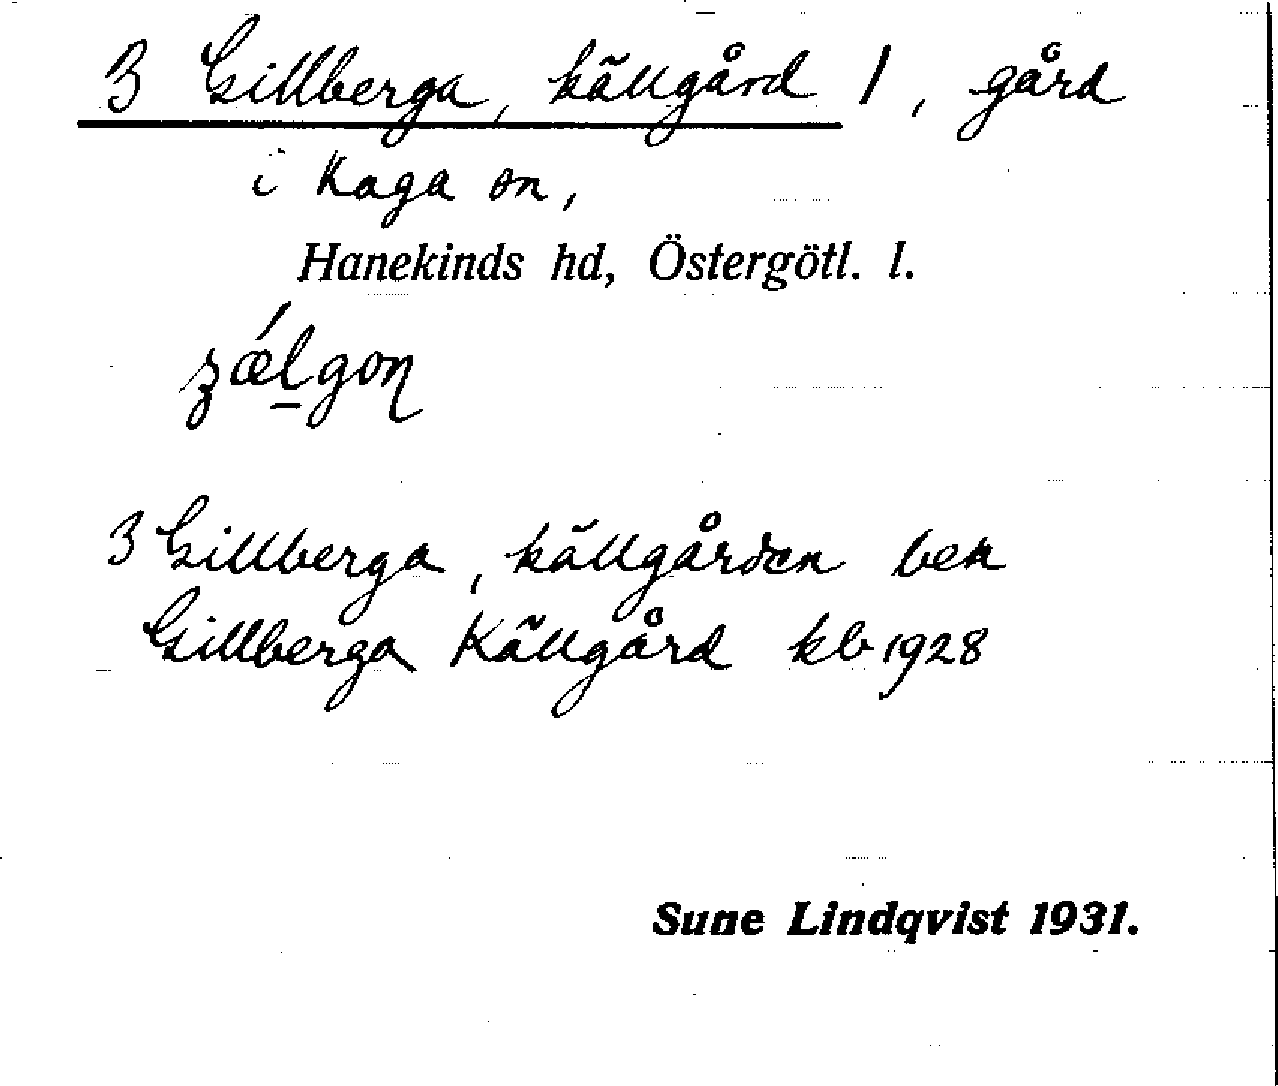 3 Gillberga, källgård 1, gård
i Kaga sn,
Hanekinds hd, Östergötl. l.
3 Gillberga, källgården bek
Gillberga Källgård kb 1928
Sune Lindqvist 1931.